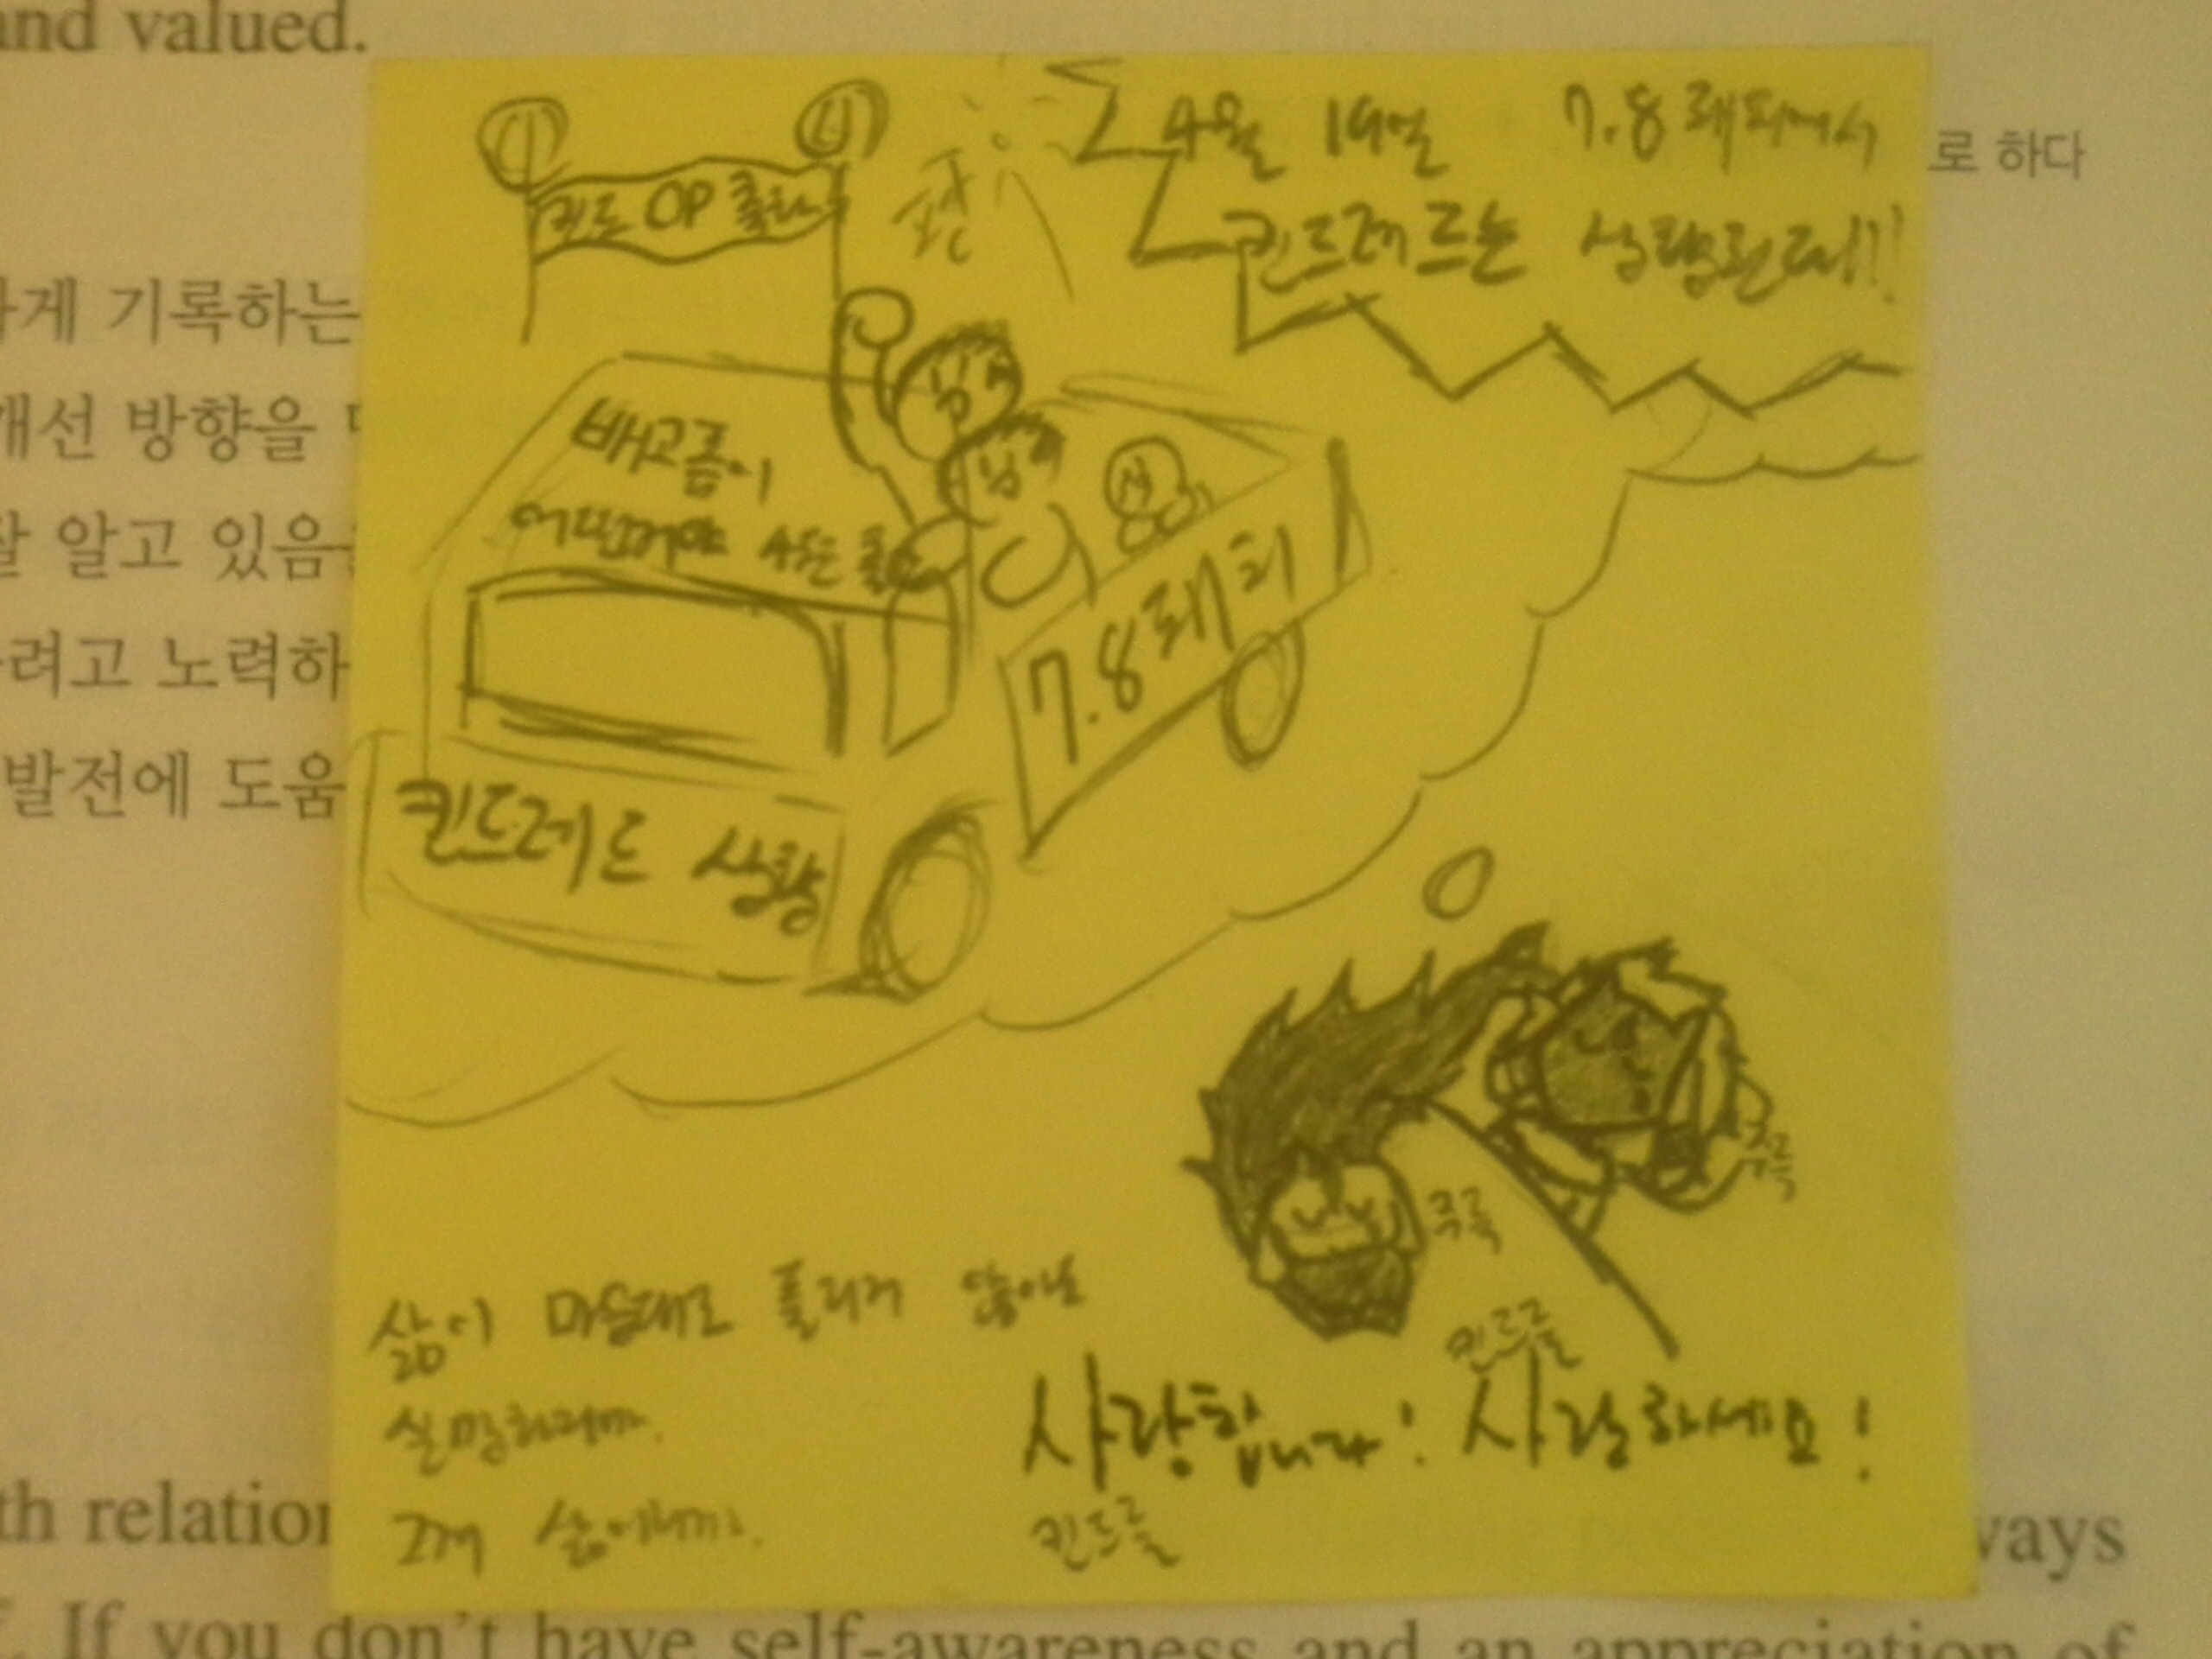 and valued.
4월 19일 7.8패치에서
로 하다
킨드레드는 상향된대!!
킨드 OP 출차
하게 기록하는
배고픔이
개선 방향을
어떤거야
잘 알고 있음
7.8패치
려고 노력하
발전에 도움
킨드레드 상향
주륵
주륵
삶이 마음대로 풀리지 않아도
실망하지마.
그게 삶이니까.
킨드를
사랑합니다! 사랑하세요!
킨드를
th relation
ways
f. If you don't have self-awareness and an appreciation of